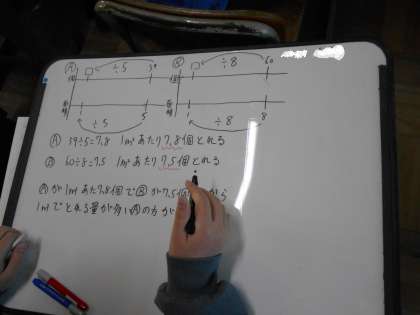 Ⓐ ÷5 39 Ⓑ ÷8 60
個 個
面積 面積
1 ÷5 5 1 ÷8 8
Ⓐ 39÷5=7.8 1m²あたり7.8個とれる
Ⓑ 60÷8=7.5 1m²あたり7.5個とれる
Ⓐが1mあたり7.8個でⒷが7.5個 から
1mでとれる量が多いⒶの方が